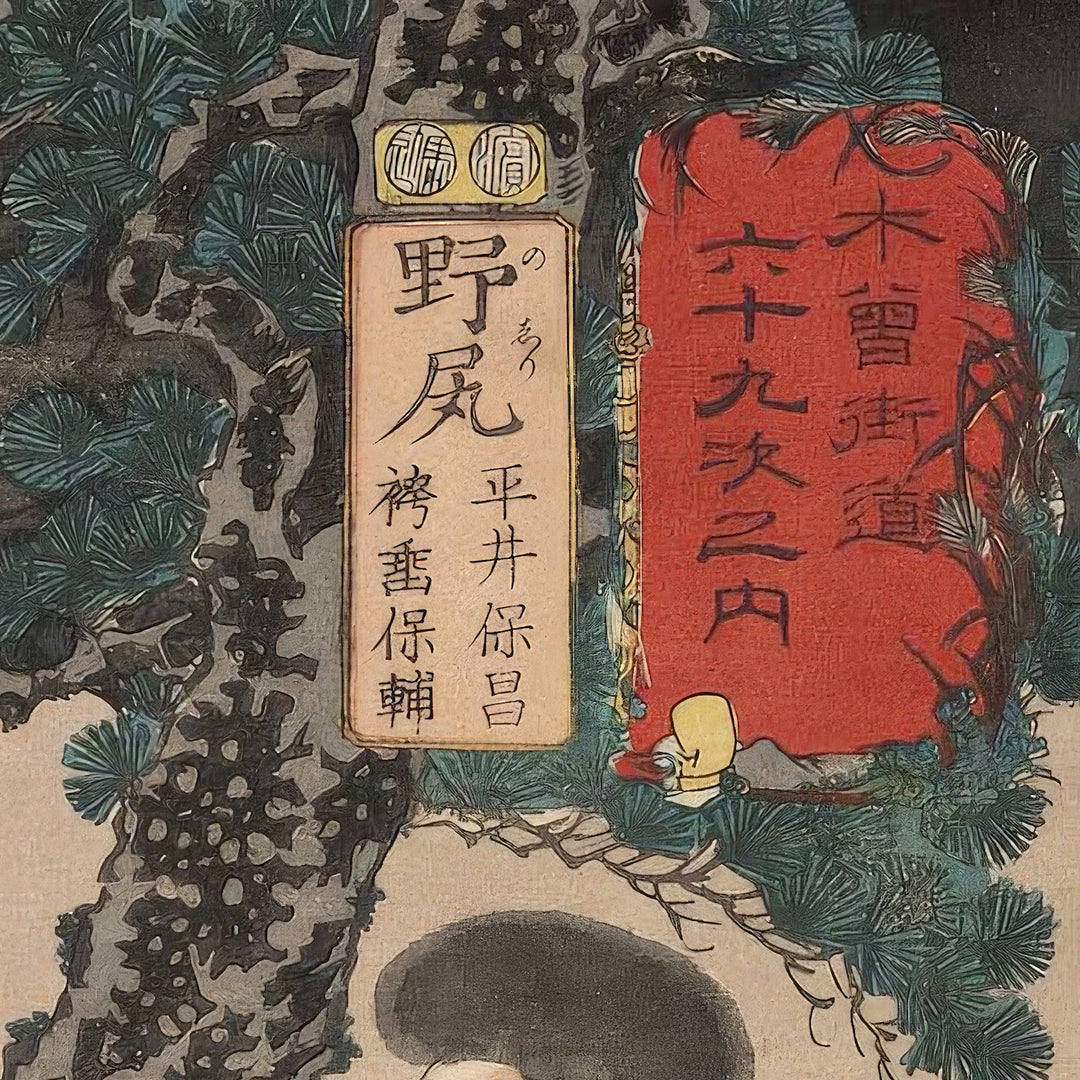 木曽街道
六十九次之内
濵
馬込
野尻
のゑり
平井保昌
袴垂保輔